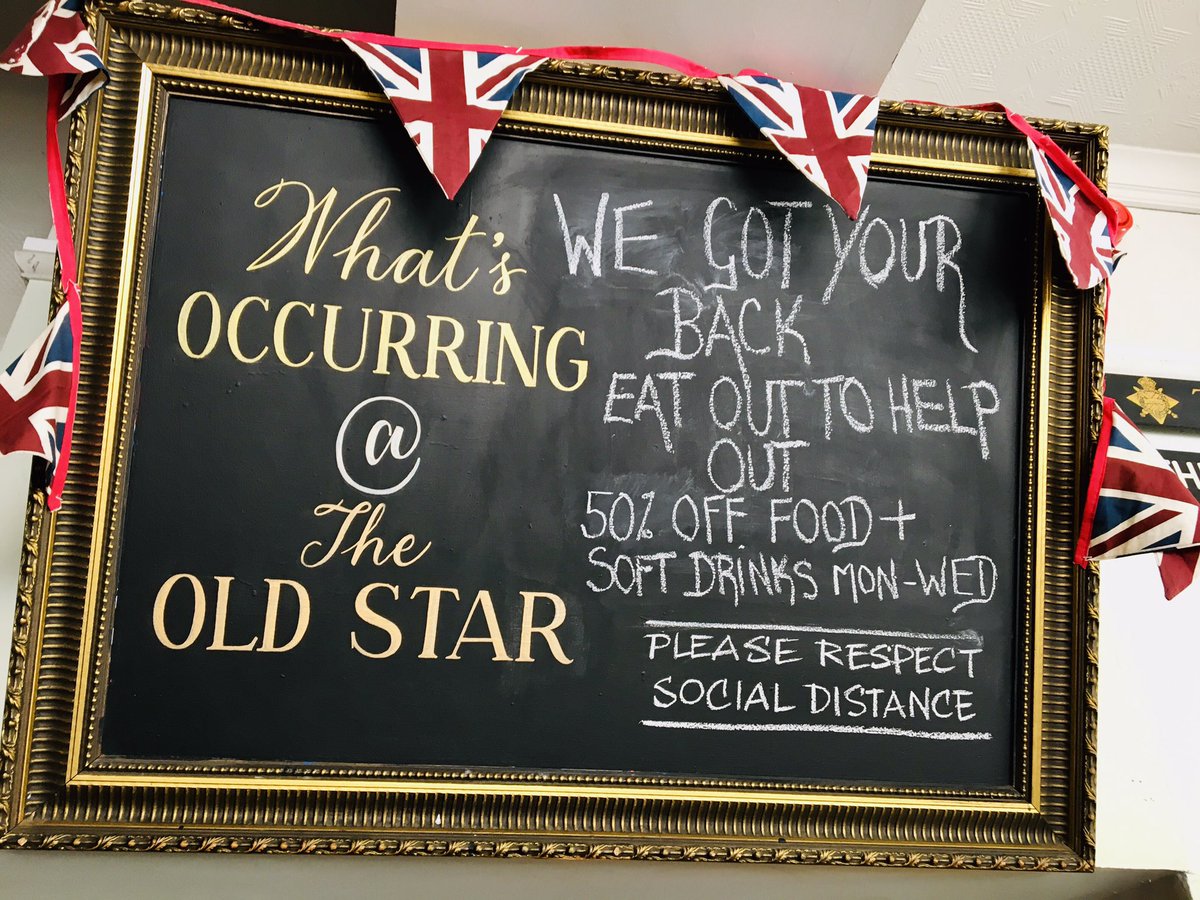 What's
OCCURRING
@
The
OLD STAR
WE GOT YOUR
BACK
EAT OUT TO HELP
OUT
50% OFF FOOD +
SOFT DRINKS MON-WED
PLEASE RESPECT
SOCIAL DISTANCE